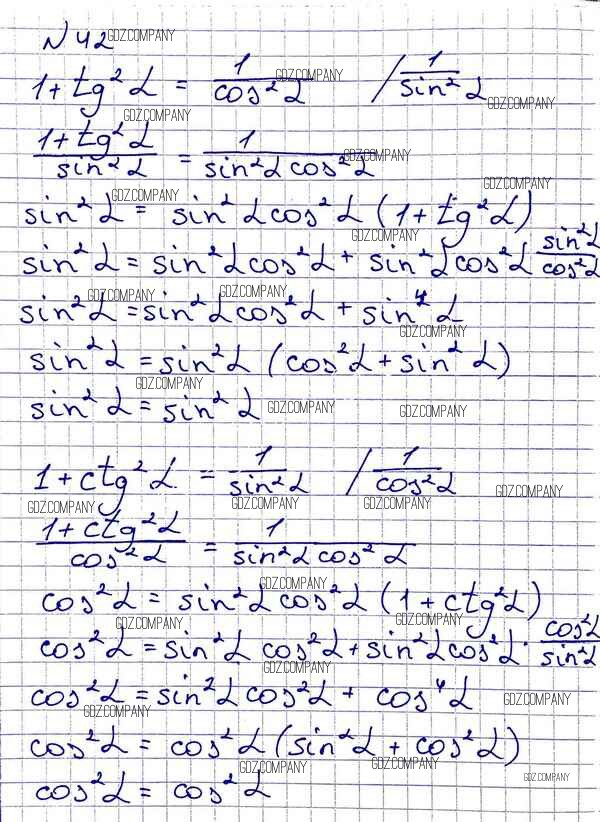 N 42 GDZ.COMPANY
1 + tg² α = 1/cos² α GDZ.COMPANY / 1/sin² α GDZ.COMPANY
GDZ.COMPANY
(1 + tg² α)/(sin² α) = 1/(sin² α cos² α) GDZ.COMPANY
GDZ.COMPANY GDZ.COMPANY
sin² α = sin² α cos² α (1 + tg² α)
GDZ.COMPANY
sin² α = sin² α cos² α + sin² α cos² α sin² α/cos² α
GDZ.COMPANY GDZ.COMPANY
sin² α = sin² α cos² α + sin⁴ α
GDZ.COMPANY
sin² α = sin² α (cos² α + sin² α)
GDZ.COMPANY
sin² α = sin² α GDZ.COMPANY GDZ.COMPANY
1 + ctg² α = 1/sin² α / 1/cos² α GDZ.COMPANY
GDZ.COMPANY GDZ.COMPANY GDZ.COMPANY
(1 + ctg² α)/(cos² α) = 1/(sin² α cos² α)
GDZ.COMPANY
cos² α = sin² α cos² α (1 + ctg² α)
GDZ.COMPANY GDZ.COMPANY
cos² α = sin² α cos² α + sin² α cos² α · cos² α/sin² α
GDZ.COMPANY
cos² α = sin² α cos² α + cos⁴ α GDZ.COMPANY
GDZ.COMPANY
cos² α = cos² α (sin² α + cos² α)
GDZ.COMPANY GDZ.COMPANY
cos² α = cos² α GDZ.COMPANY